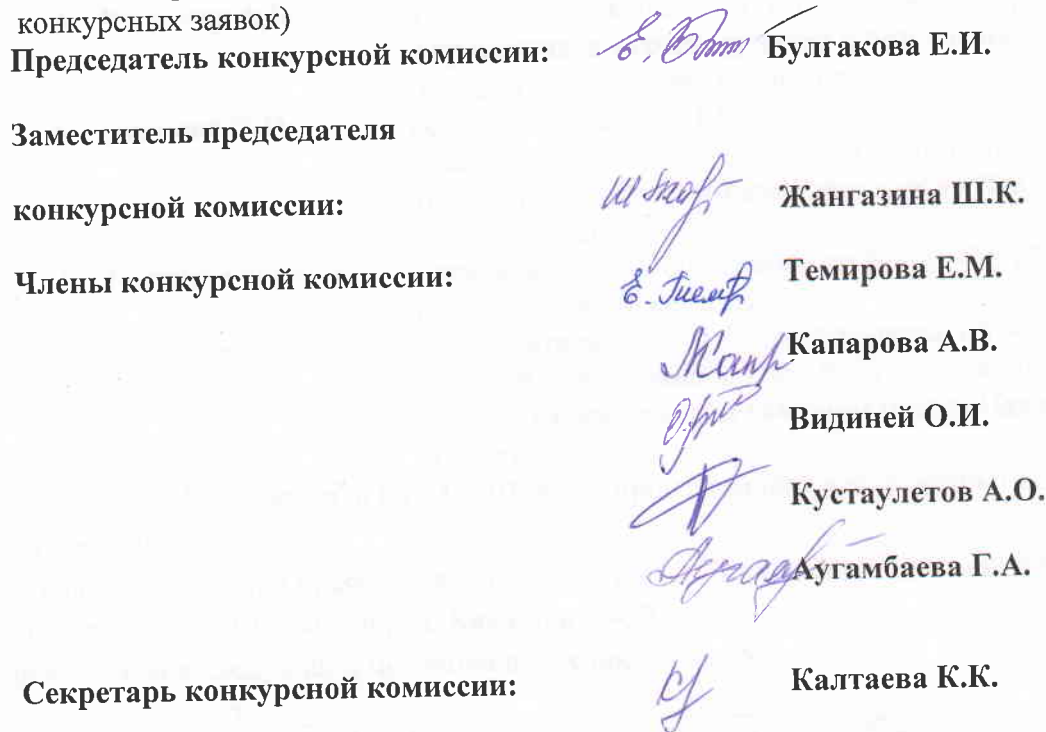 конкурсных заявок)
Председатель конкурсной комиссии: Булгакова Е.И.
Заместитель председателя
конкурсной комиссии: Жангазина Ш.К.
Члены конкурсной комиссии: Темирова Е.М.
Капарова А.В.
Видиней О.И.
Кустаулетов А.О.
Аугамбаева Г.А.
Секретарь конкурсной комиссии: Калтаева К.К.